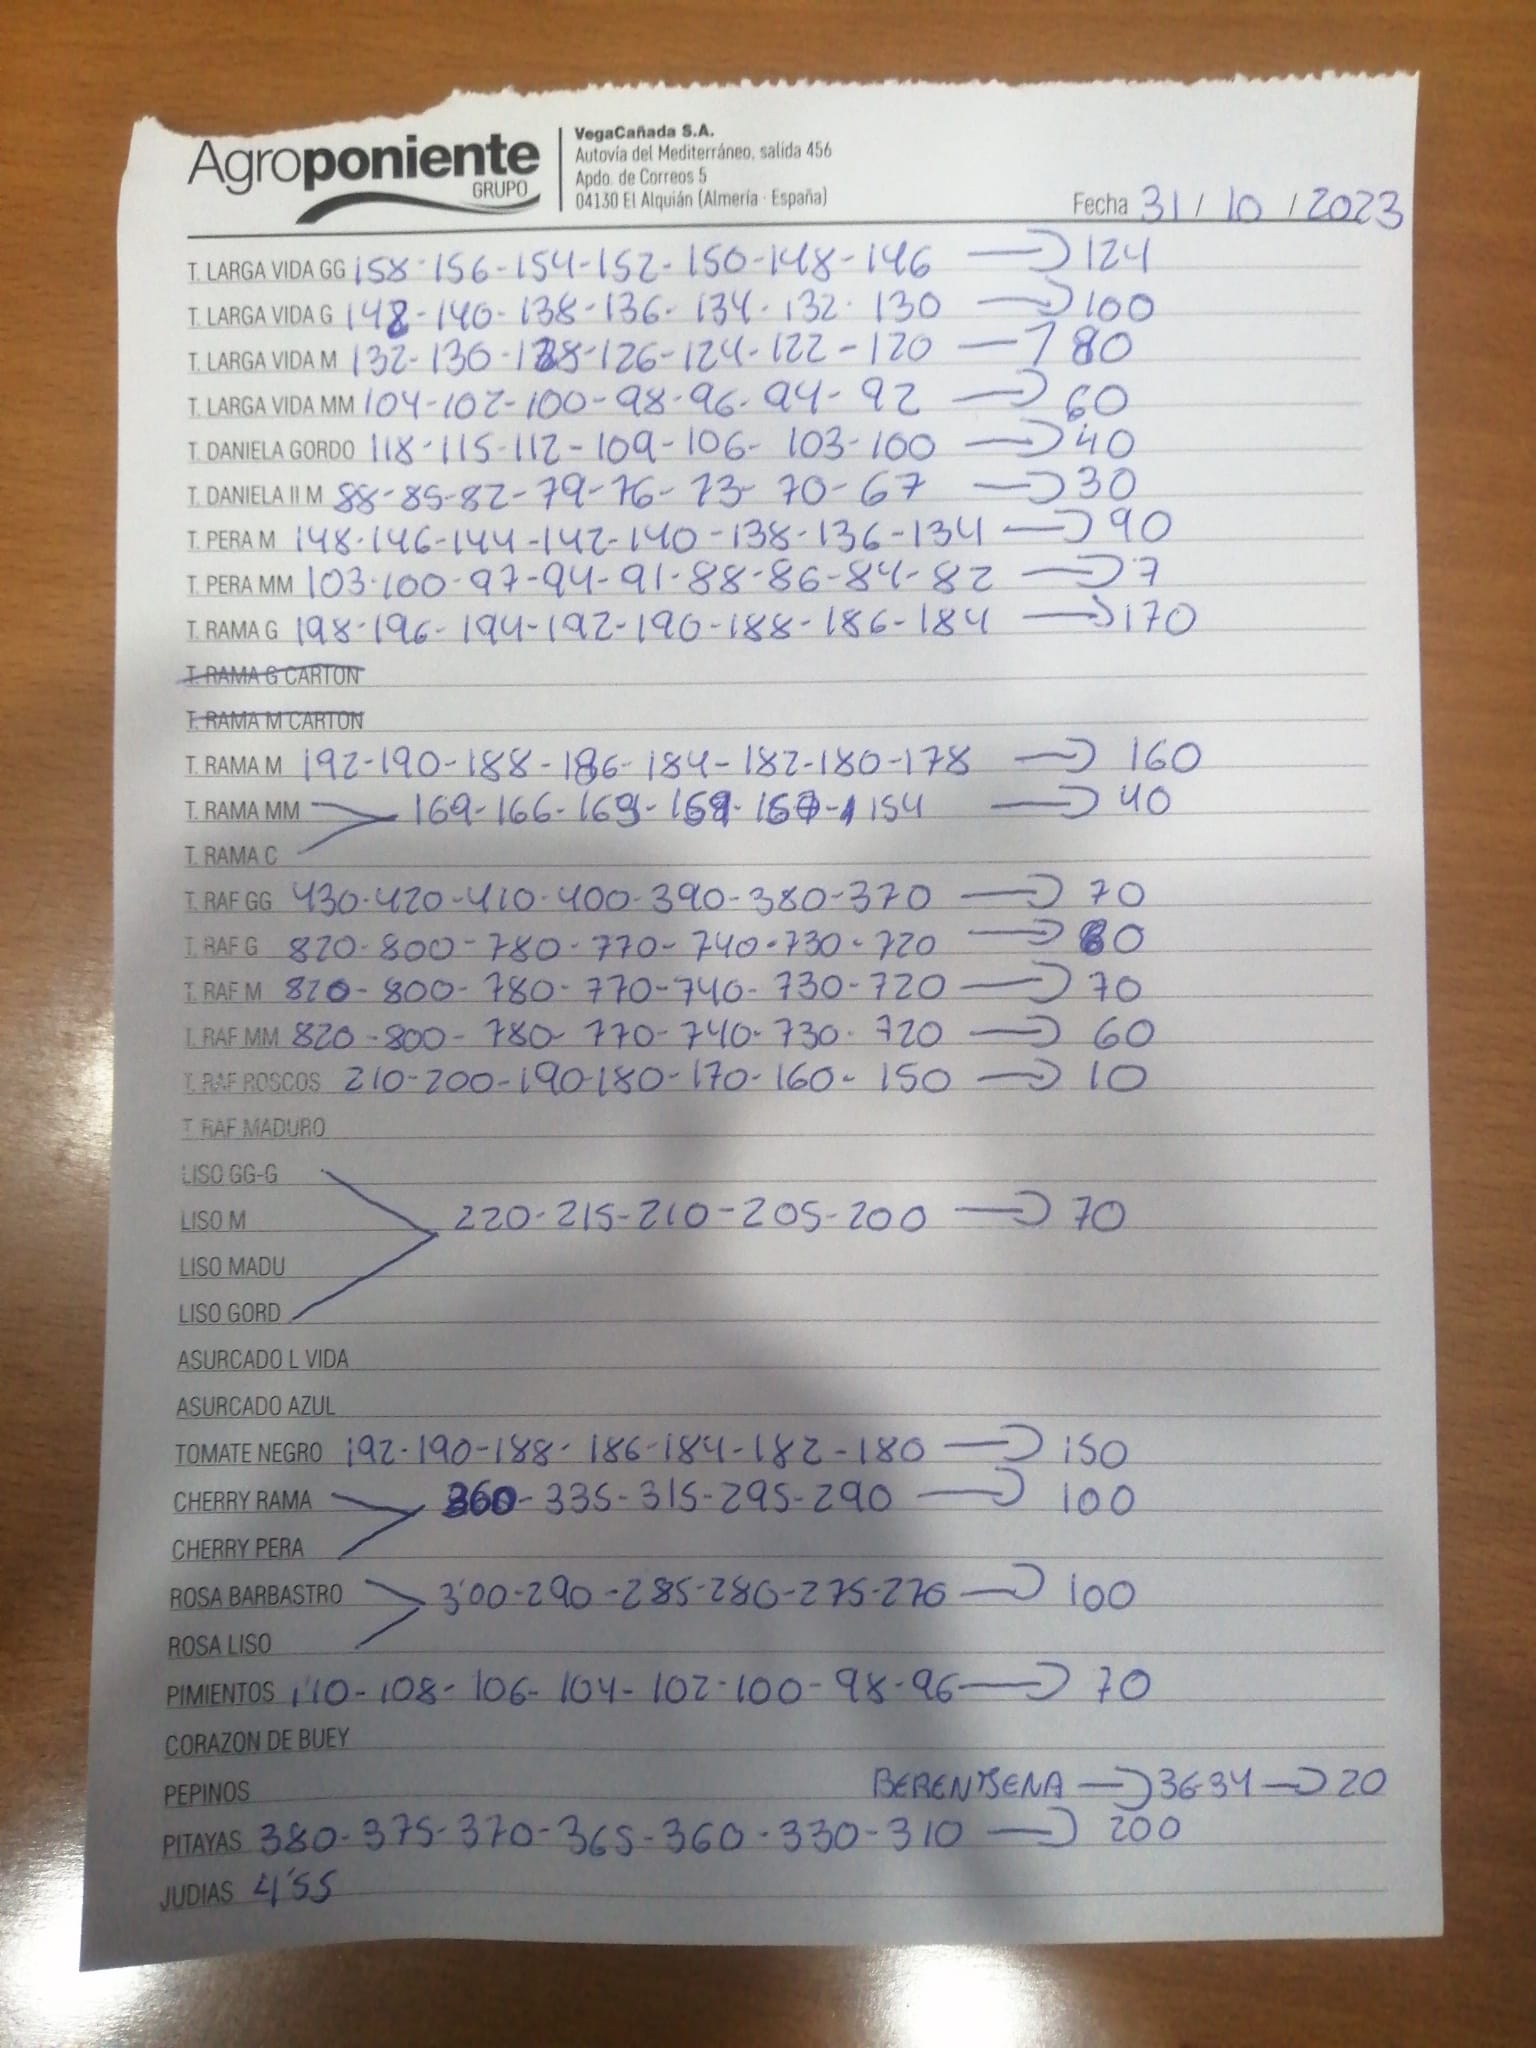 Agroponiente
GRUPO
VegaCañada S.A.
Autovía del Mediterráneo, salida 456
Apdo. de Correos 5
04130 El Alquián (Almería · España)
Fecha 31 / 10 / 2023
T. LARGA VIDA GG 158-156-154-152-150-148-146 → 124
T. LARGA VIDA G 142-140-138-136-134-132-130 → 100
T. LARGA VIDA M 132-130-128-126-124-122-120 → 80
T. LARGA VIDA MM 104-102-100-98-96-94-92 → 60
T. DANIELA GORDO 118-115-112-109-106-103-100 → 40
T. DANIELA II M 88-85-82-79-76-73-70-67 → 30
T. PERA M 148-146-144-142-140-138-136-134 → 90
T. PERA MM 103-100-97-94-91-88-86-84-82 → 7
T. RAMA G 198-196-194-192-190-188-186-184 → 170
T. RAMA G CARTON
T. RAMA M CARTON
T. RAMA M 192-190-188-186-184-182-180-178 → 160
T. RAMA MM 169-166-163-159-157-154 → 40
T. RAMA C
T. RAF GG 430-420-410-400-390-380-370 → 70
T. RAF G 820-800-780-770-740-730-720 → 60
T. RAF M 820-800-780-770-740-730-720 → 70
T. RAF MM 820-800-780-770-740-730-720 → 60
T. RAF ROSCOS 210-200-190-180-170-160-150 → 10
T. RAF MADURO
LISO GG-G
LISO M 220-215-210-205-200 → 70
LISO MADU
LISO GORD
ASURCADO L VIDA
ASURCADO AZUL
TOMATE NEGRO 192-190-188-186-184-182-180 → 150
CHERRY RAMA 360-335-315-295-290 → 100
CHERRY PERA
ROSA BARBASTRO 3'00-290-285-280-275-270 → 100
ROSA LISO
PIMIENTOS 1'10-108-106-104-102-100-98-96 → 70
CORAZON DE BUEY
PEPINOS BERENJENA → 36-34 → 20
PITAYAS 380-375-370-365-360-330-310 → 200
JUDIAS 4'55